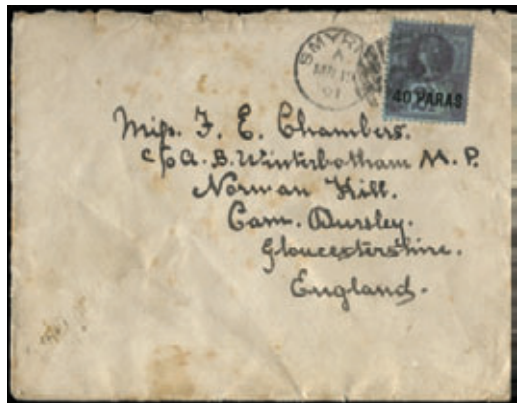 SMYRNA
A
01
40 PARAS
Miss. F. E. Chambers.
c/o A. B. Winterbotham M. P.
Norman Hill.
Cam. Dursley.
Gloucestershire.
England.